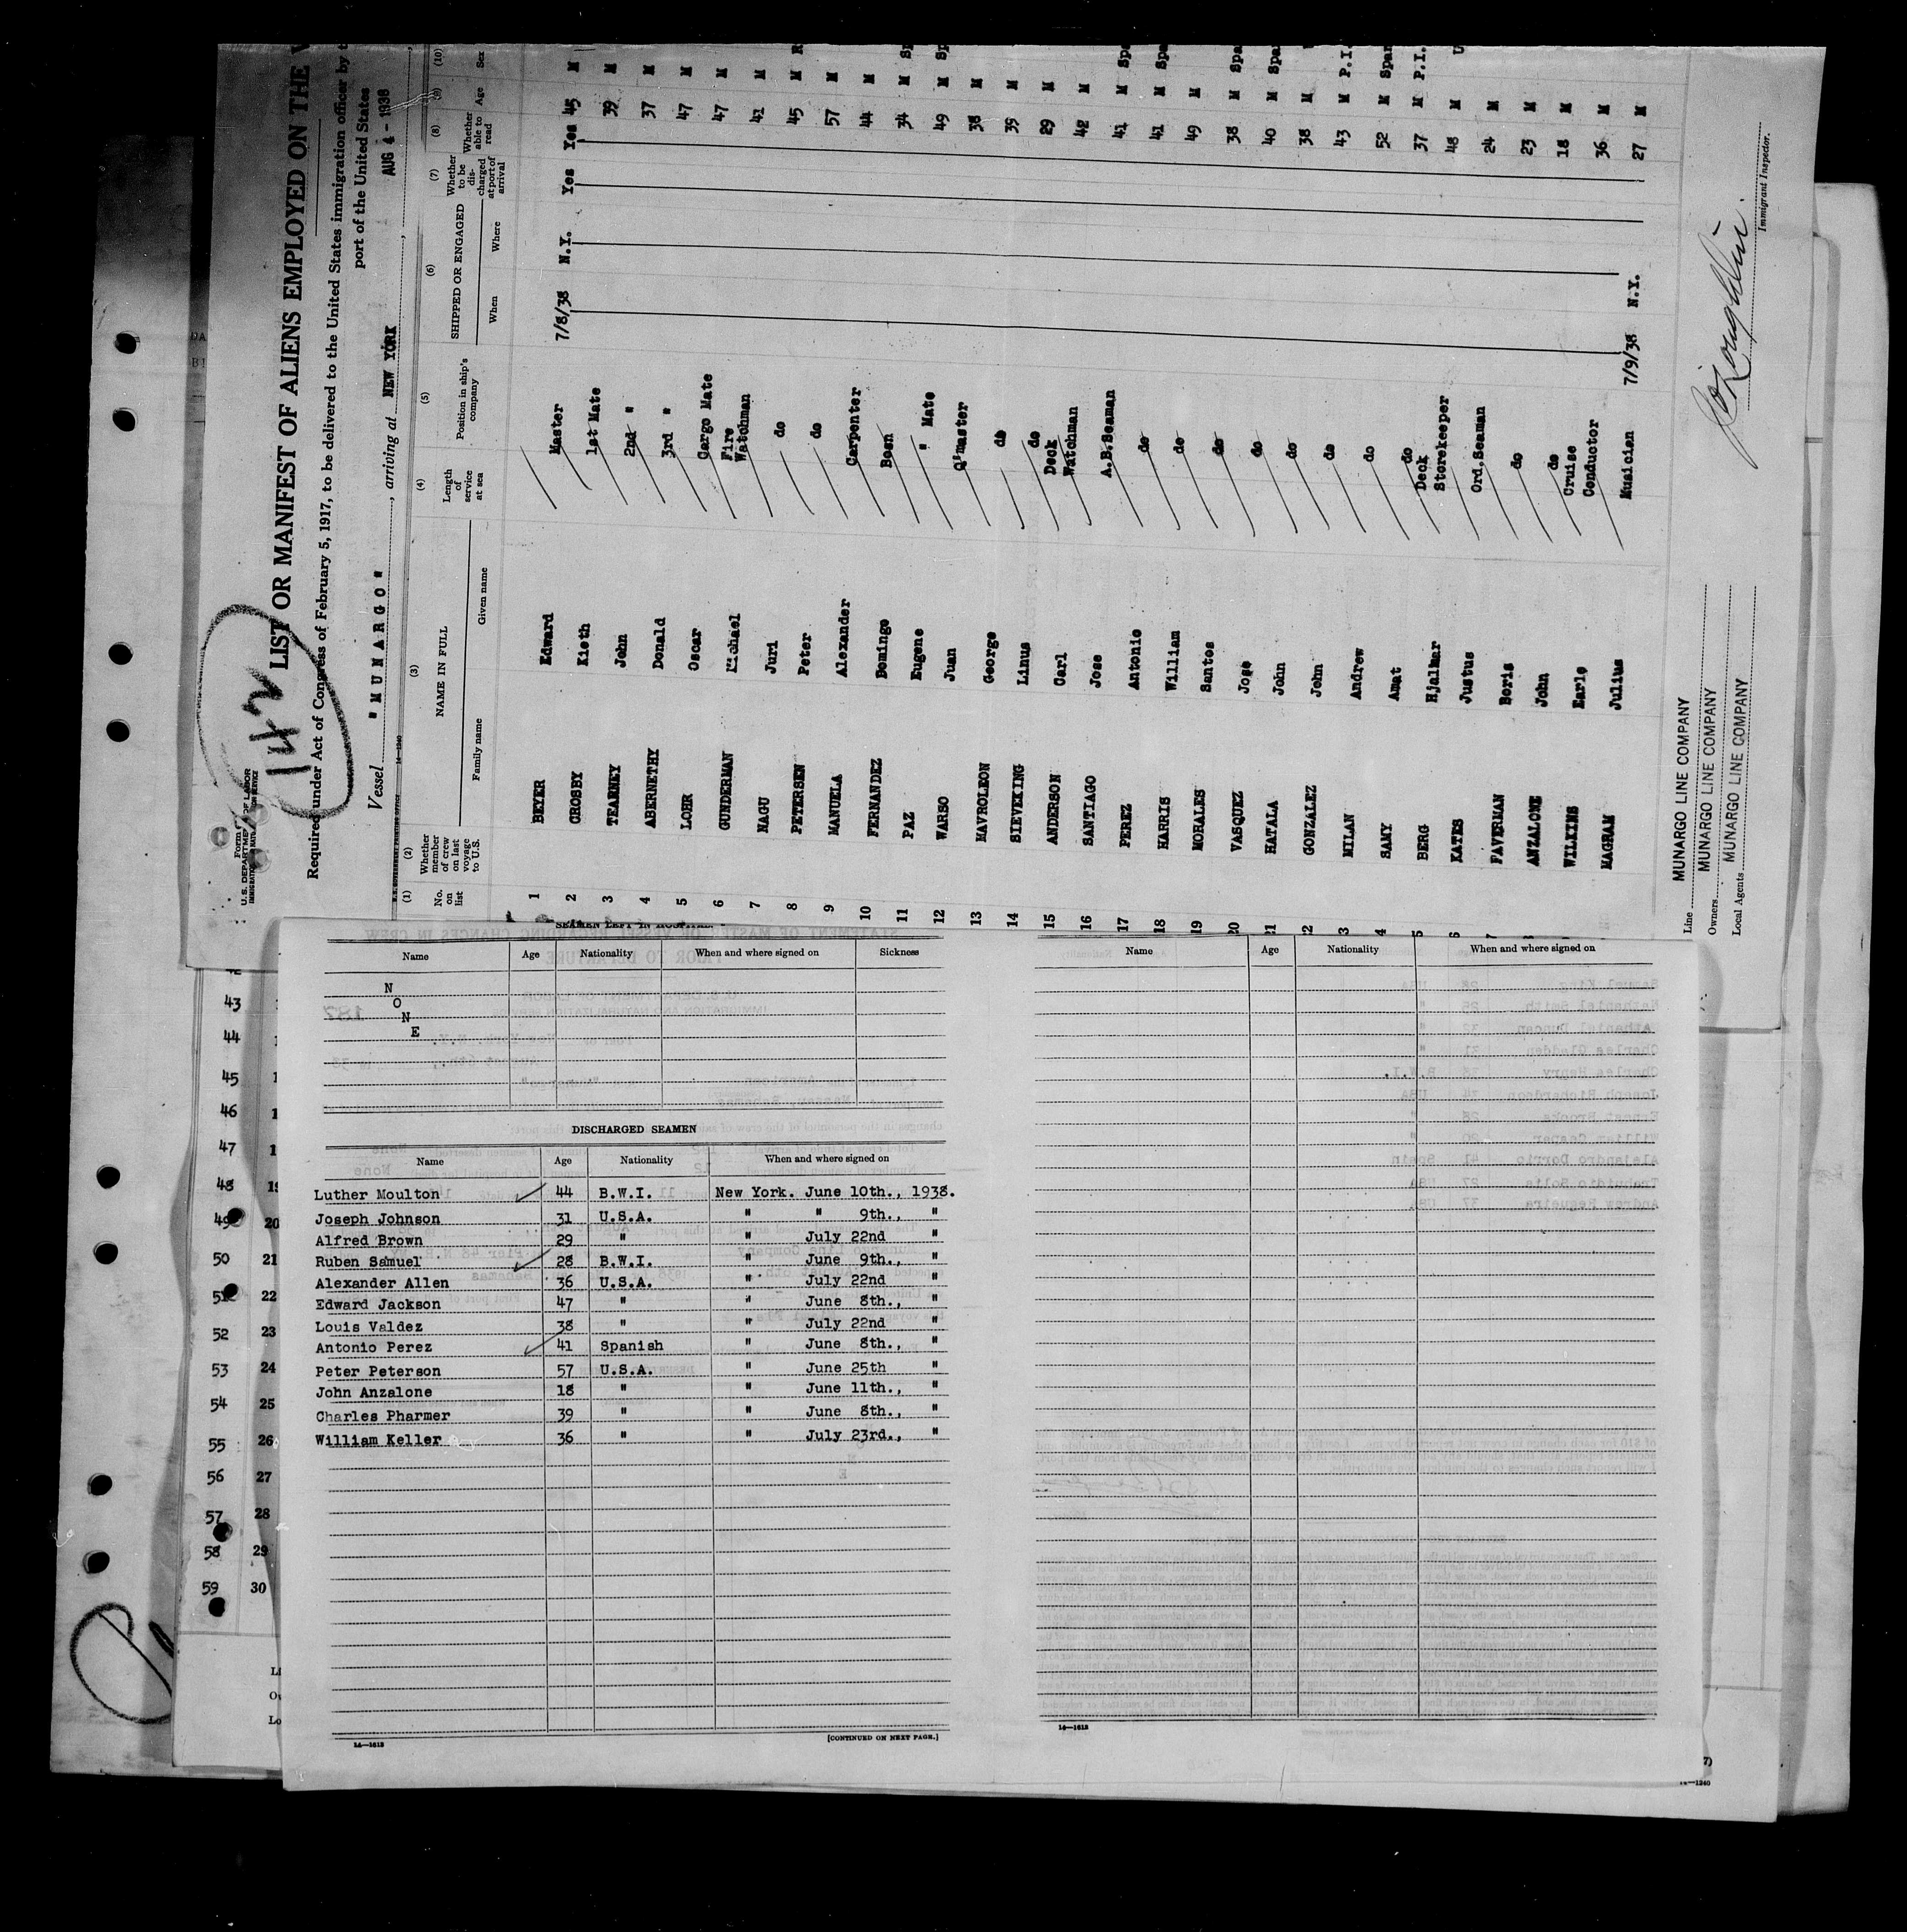 142
Form
U.S. DEPARTMENT OF LABOR
LIST OR MANIFEST OF ALIENS EMPLOYED ON THE
Required under Act of Congress of February 5, 1917, to be delivered to the United States immigration officer by
port of the United States
Vessel "MUNARGO", arriving at NEW YORK, AUG 4 - 1938
(1) (2) (3) (4) (5) (6) (7) (8) (9) (10)
No. on list
Whether member of crew on last voyage to U.S.
NAME IN FULL
Family name Given name
Length of service at sea
Position in ship's company
SHIPPED OR ENGAGED
When Where
Whether to be discharged at port of arrival
Whether able to read
Age
Sex
1 BEYER Edward Master 7/8/38 N.Y. Yes Yes 45 M
2 CROSBY Kieth 1st Mate 39 M
3 TEARNEY John 2nd " 37 M
4 ABERNETHY Donald 3rd " 47 M
5 LOHR Oscar Cargo Mate 47 M
6 GUNDERMAN Michael Fire Watchman 41 M
7 NAGU Juri do 45 M R
8 PETERSEN Peter do 57 M
9 MANUELA Alexander Carpenter 44 M
10 FERNANDEZ Domingo Bosn 34 M Sp
11 PAZ Eugene " Mate 49 M Sp
12 WARSO Juan Q'master 38 M
13 MAVROLEON George do 39 M
14 SIEVEKING Linus do 29 M
15 ANDERSON Carl Deck Watchman 42 M
16 SANTIAGO Jose A.B.Seaman 41 M Spa
17 PEREZ Antonio do 41 M Spa
18 HARRIS William do 49 M
19 MORALES Santos do 38 M Spa
20 VASQUEZ Jose do 40 M Spa
21 HATALA John do 38 M
2 GONZALEZ John do 43 M P.I.
3 MILAN Andrew do 52 M Spa
4 SAMY Amat do 37 M P.I.
5 BERG Hjalmar Deck Storekeeper 48 M U
6 KATES Justus Ord.Seaman 24 M
FAVERMAN Boris do 23 M
ANZALONE John do 18 M
WILKINS Earle Cruise Conductor 36 M
MAGHAM Julius Musician 7/9/38 N.Y. 27 M
Line MUNARGO LINE COMPANY
Owners MUNARGO LINE COMPANY
Local Agents MUNARGO LINE COMPANY
Immigrant Inspector.
SEAMEN LEFT IN HOSPITAL
Name Age Nationality When and where signed on Sickness
N
O
N
E
DISCHARGED SEAMEN
Name Age Nationality When and where signed on
Luther Moulton 44 B.W.I. New York. June 10th., 1938.
Joseph Johnson 31 U.S.A. " " 9th., "
Alfred Brown 29 " " July 22nd "
Ruben Samuel 28 B.W.I. " June 9th., "
Alexander Allen 36 U.S.A. " July 22nd "
Edward Jackson 47 " " June 8th., "
Louis Valdez 38 " " July 22nd "
Antonio Perez 41 Spanish " June 8th., "
Peter Peterson 57 U.S.A. " June 25th "
John Anzalone 18 " " June 11th., "
Charles Pharmer 39 " " June 8th., "
William Keller 36 " " July 23rd., "
14—1613
[CONTINUED ON NEXT PAGE.]
Name Age Nationality When and where signed on
14—1613
43
44
45
46
47
48
49 20
50 21
51 22
52 23
53 24
54 25
55 26
56 27
57 28
58 29
59 30
14—1240